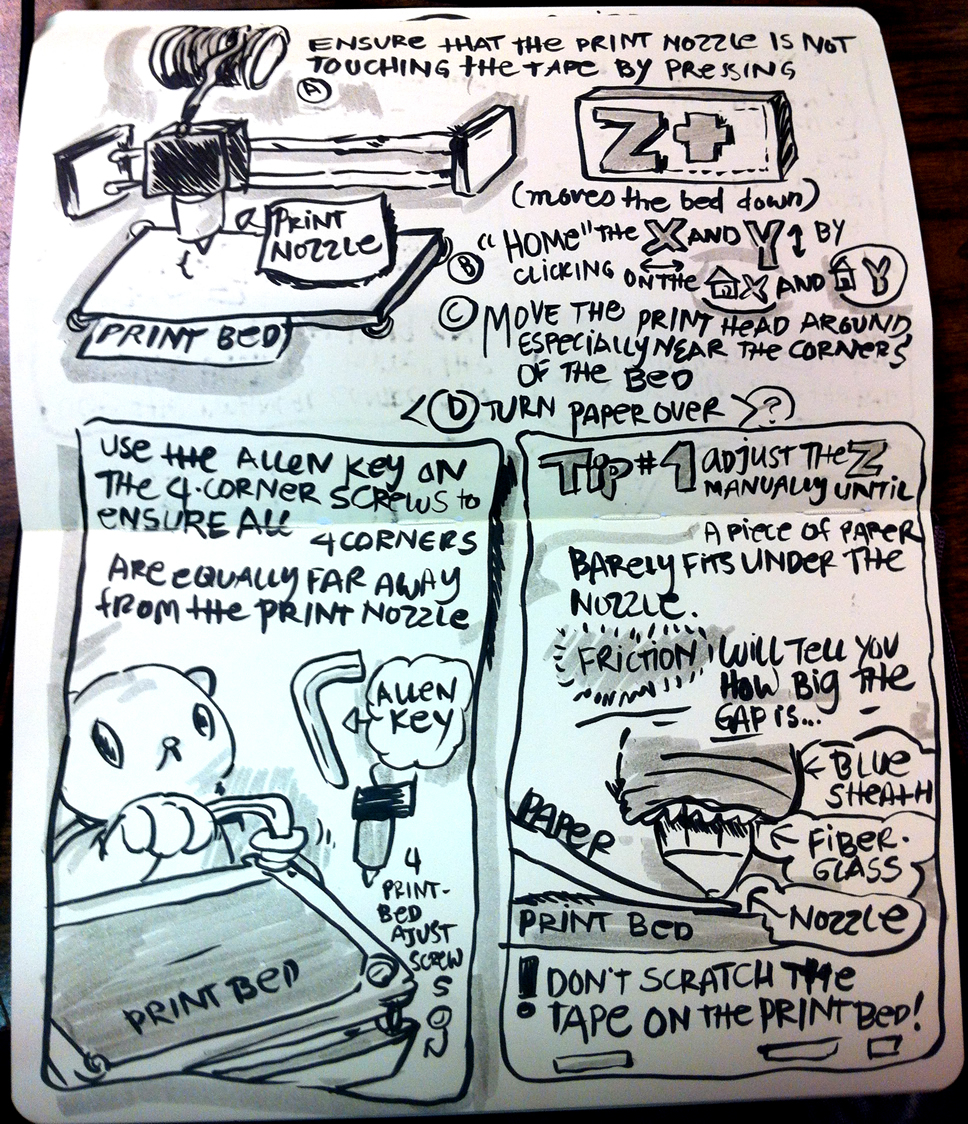 ENSURE THAT THE PRINT NOZZLE IS NOT
TOUCHING THE TAPE BY PRESSING
A
Z+
(moves the bed down)
PRINT
NOZZLE
PRINT BED
B "HOME" THE X AND Y BY
CLICKING ON THE X AND Y
C MOVE THE PRINT HEAD AROUND
ESPECIALLY NEAR THE CORNERS
OF THE BED
D TURN PAPER OVER ?
USE THE ALLEN KEY ON
THE 4-CORNER SCREWS to
ENSURE ALL
4 CORNERS
ARE EQUALLY FAR AWAY
from the PRINT NOZZLE
ALLEN
KEY
4
PRINT-
BED
AJUST
SCREW
S
PRINT BED
TIP #1 ADJUST THE Z
MANUALLY UNTIL
A PIECE OF PAPER
BARELY FITS UNDER THE
NOZZLE.
FRICTION WILL TELL YOU
HOW BIG THE
GAP IS...
BLUE
SHEATH
PAPER
FIBER-
GLASS
NOZZLE
PRINT BED
! DON'T SCRATCH THE
TAPE ON THE PRINT BED!